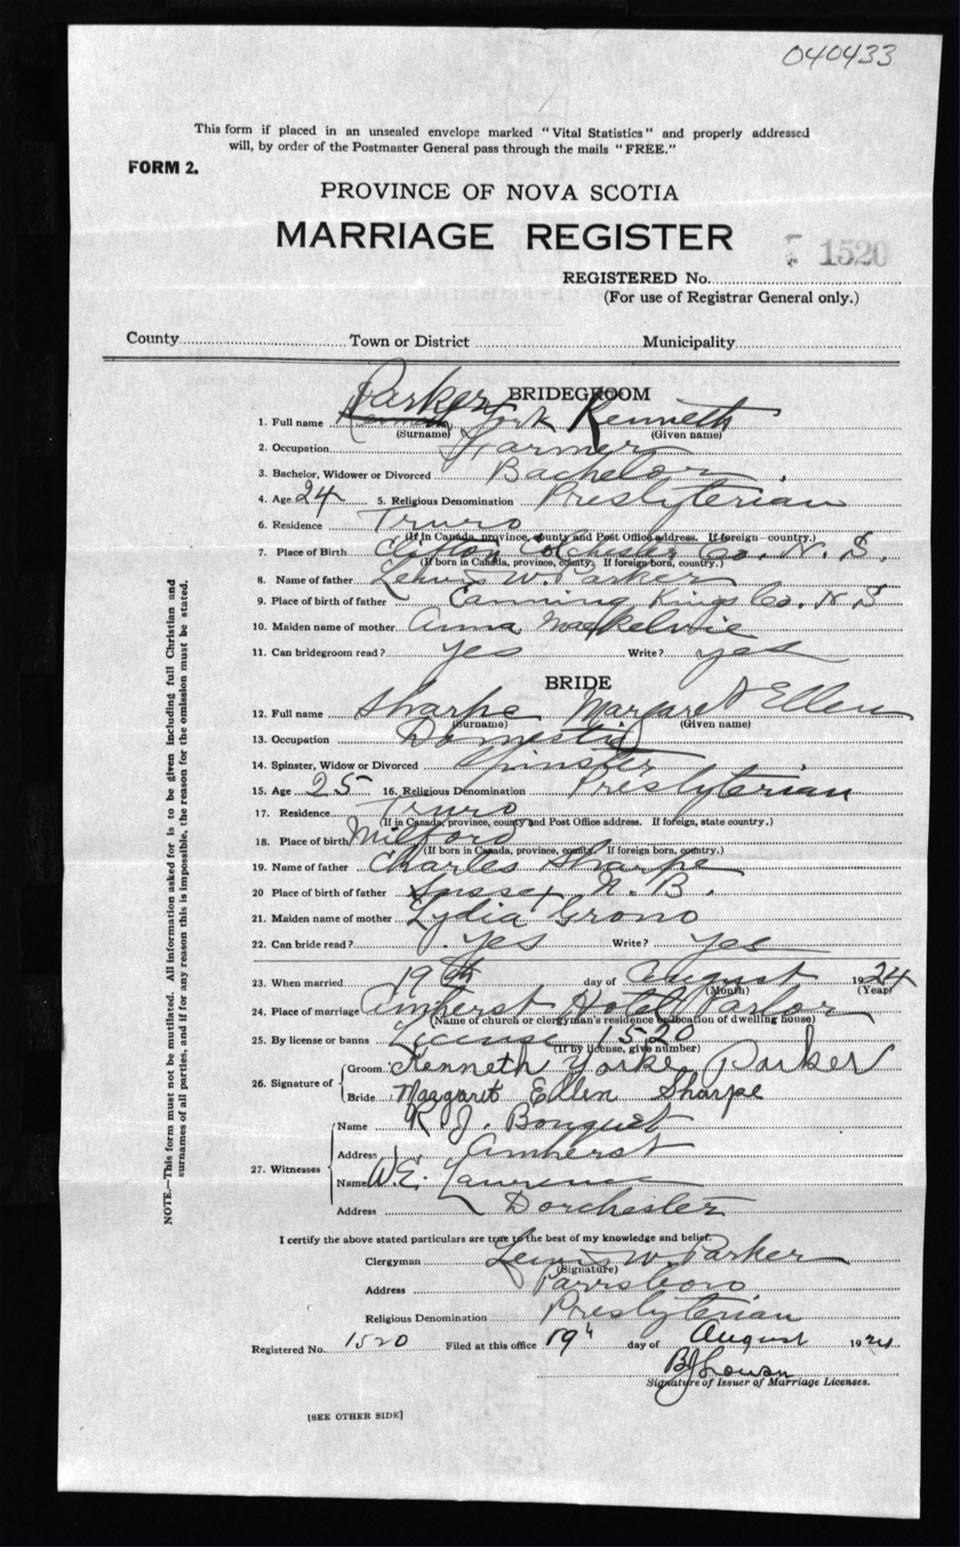 040433
This form if placed in an unsealed envelope marked "Vital Statistics" and properly addressed
will, by order of the Postmaster General pass through the mails "FREE."
FORM 2.
PROVINCE OF NOVA SCOTIA
MARRIAGE REGISTER
1520
REGISTERED No.
(For use of Registrar General only.)
County Town or District Municipality
BRIDEGROOM
1. Full name Parker York Kenneth
(Surname) (Given name)
2. Occupation Farmer
3. Bachelor, Widower or Divorced Bachelor
4. Age 24 5. Religious Denomination Presbyterian
6. Residence Truro
(If in Canada, province, county and Post Office address. If foreign-country.)
7. Place of Birth Clifton Colchester Co. N. S.
(If born in Canada, province, county. If foreign-born, country.)
8. Name of father Lewis W. Parker
9. Place of birth of father Canning Kings Co. N S
10. Maiden name of mother Anna MacKelvie
11. Can bridegroom read? yes Write? yes
BRIDE
12. Full name Sharpe Margaret Ellen
(Surname) (Given name)
13. Occupation Domestic
14. Spinster, Widow or Divorced Spinster
15. Age 25 16. Religious Denomination Presbyterian
17. Residence Truro
(If in Canada, province, county and Post Office address. If foreign, state country.)
18. Place of birth Milford
(If born in Canada, province, county. If foreign born, country.)
19. Name of father Charles Sharpe
20 Place of birth of father Sussex N. B.
21. Maiden name of mother Lydia Grono
22. Can bride read? yes Write? yes
23. When married 19th day of August 1924
(Month) (Year)
24. Place of marriage Amherst Hotel Parlor
(Name of church or clergyman's residence or location of dwelling house)
25. By license or banns License 1520
(If by license, give number)
26. Signature of
Groom Kenneth Yorke Parker
Bride Margaret Ellen Sharpe
27. Witnesses
Name R. J. Bouquet
Address Amherst
Name W. E. Lawrence
Address Dorchester
I certify the above stated particulars are true to the best of my knowledge and belief.
Clergyman Lewis W. Parker
(Signature)
Address Parrsboro
Religious Denomination Presbyterian
Registered No. 1520 Filed at this office 19th day of August 1924
Signature of Issuer of Marriage Licenses.
[SEE OTHER SIDE]
NOTE.—This form must not be mutilated. All information asked for is to be given including full Christian and
surnames of all parties, and if for any reason this is impossible, the reason for the omission must be stated.